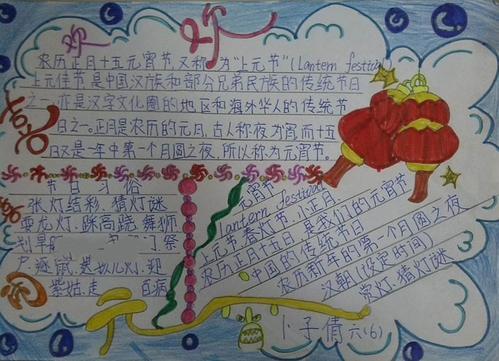 欢
农历正月十五元宵节,又称为"上元节"(Lantern festival)
上元佳节是中国汉族和部分兄弟民族的传统节日
之一,亦是汉字文化圈的地区和海外华人的传统节
日之一。正月是农历的元月,古人称夜为宵而十五
日又是一年中第一个月圆之夜,所以称为元宵节。
节日习俗
张灯结彩.猜灯谜
耍龙灯.踩高跷.舞狮
划旱
祭
户.逐鼠.送 儿灯.迎
紫姑.走
百病
元宵节
lantern festival
上元节 春灯节.小正月
农历正月十五日.是我们的元宵节
中国的传统节日
农历新年的第一个月圆之夜
汉朝(设定时间)
赏灯.猜灯谜
卜子倩 六(6)